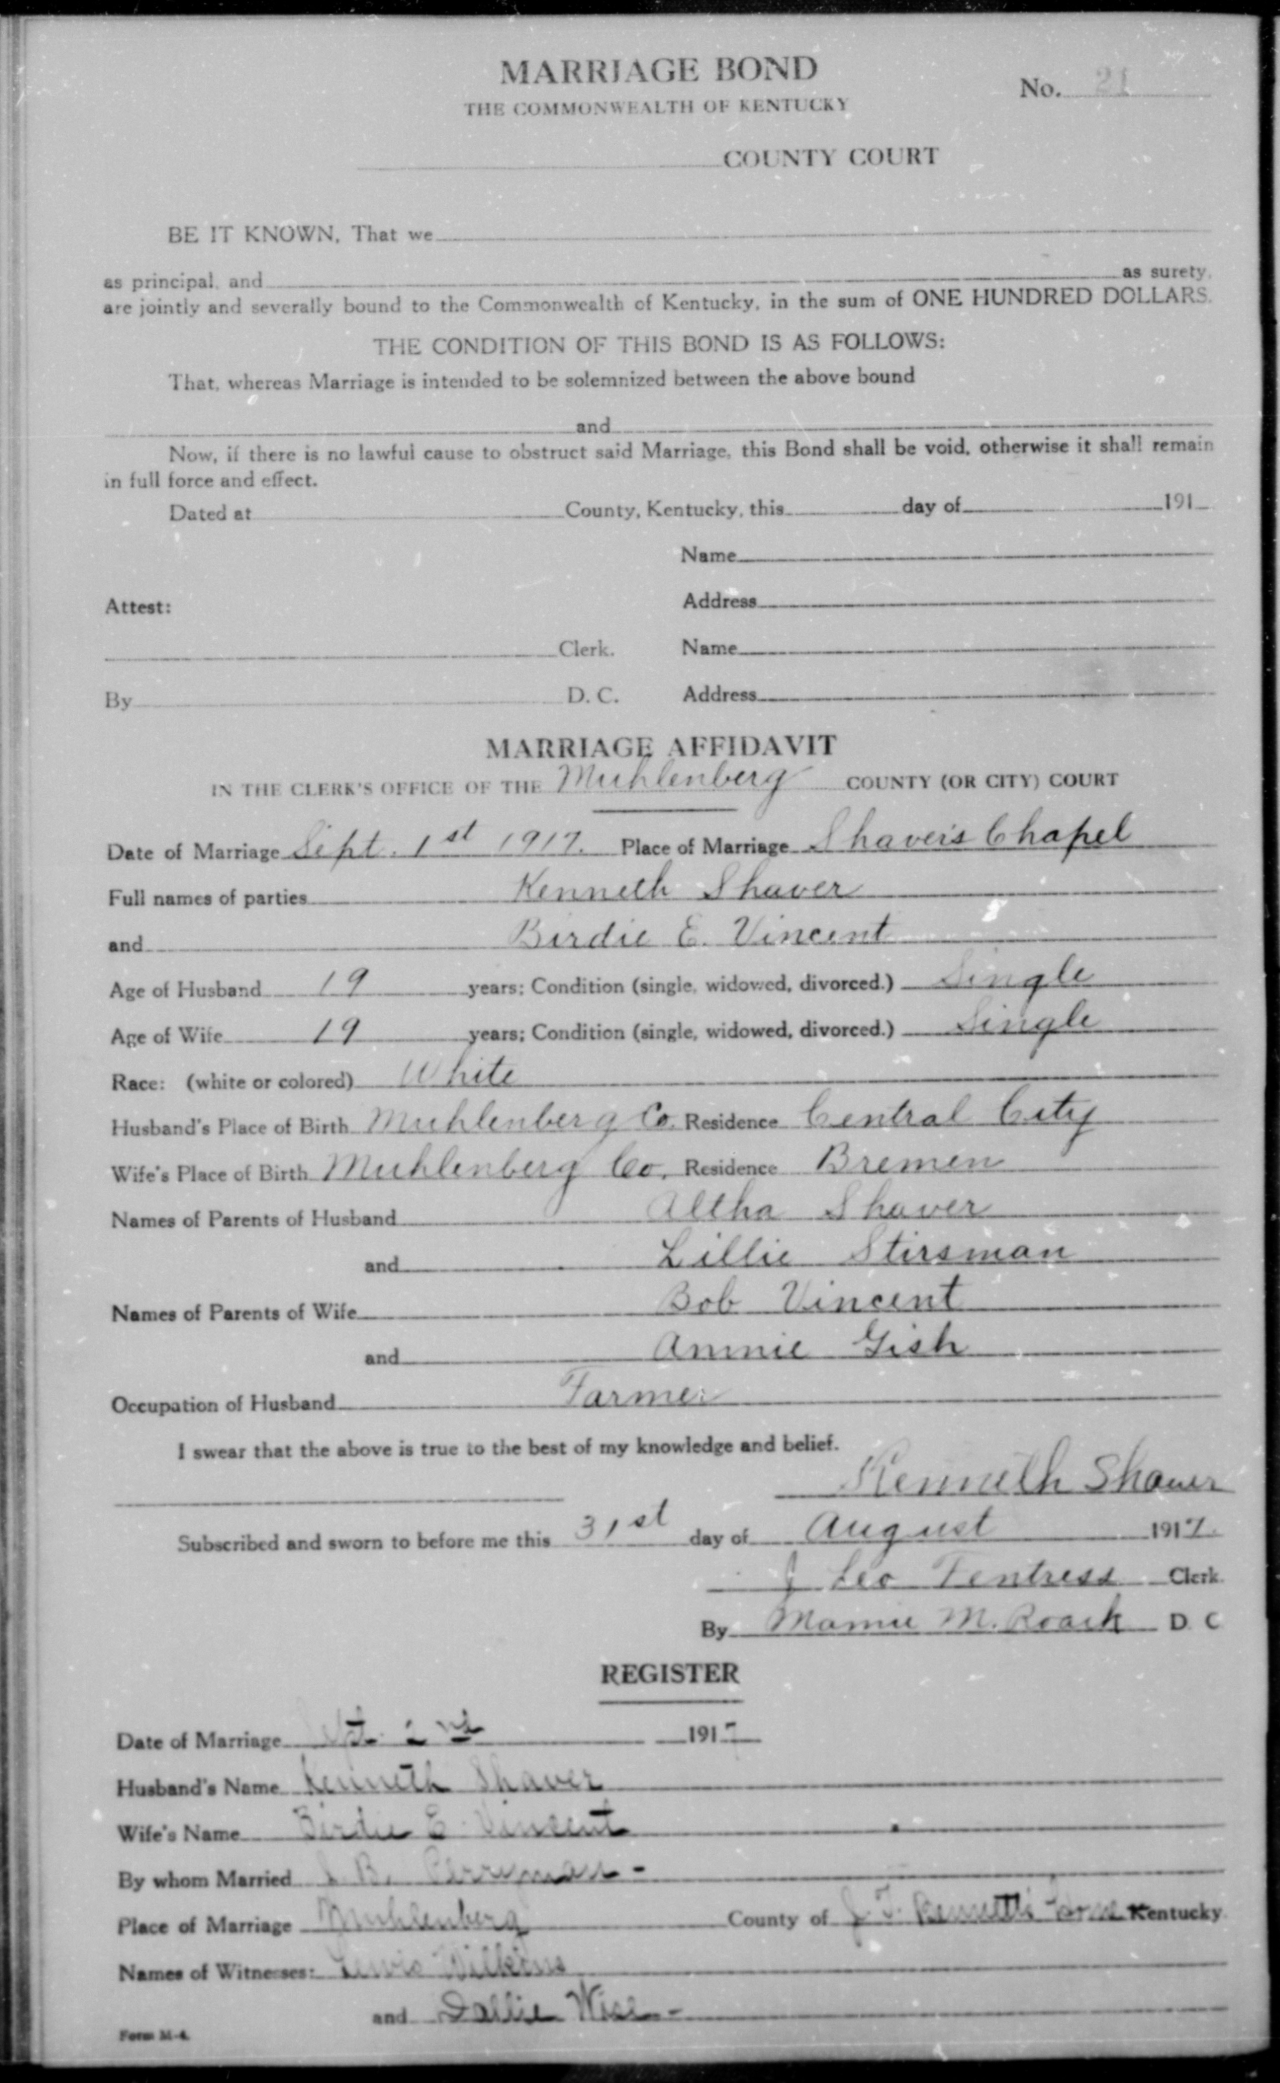 MARRIAGE BOND
THE COMMONWEALTH OF KENTUCKY
No. 21
COUNTY COURT
BE IT KNOWN, That we
as principal, and as surety,
are jointly and severally bound to the Commonwealth of Kentucky, in the sum of ONE HUNDRED DOLLARS.
THE CONDITION OF THIS BOND IS AS FOLLOWS:
That, whereas Marriage is intended to be solemnized between the above bound
and
Now, if there is no lawful cause to obstruct said Marriage, this Bond shall be void, otherwise it shall remain
in full force and effect.
Dated at County, Kentucky, this day of 191
Name
Attest: Address
Clerk. Name
By D. C. Address
MARRIAGE AFFIDAVIT
IN THE CLERK'S OFFICE OF THE Muhlenberg COUNTY (OR CITY) COURT
Date of Marriage Sept. 1st 1917. Place of Marriage Shaver's Chapel
Full names of parties Kenneth Shaver
and Birdie E. Vincent
Age of Husband 19 years; Condition (single, widowed, divorced.) Single
Age of Wife 19 years; Condition (single, widowed, divorced.) Single
Race: (white or colored) White
Husband's Place of Birth Muhlenberg Co. Residence Central City
Wife's Place of Birth Muhlenberg Co. Residence Bremen
Names of Parents of Husband Altha Shaver
and Lillie Stirsman
Names of Parents of Wife Bob Vincent
and Annie Gish
Occupation of Husband Farmer
I swear that the above is true to the best of my knowledge and belief.
Kenneth Shaver
Subscribed and sworn to before me this 31st day of August 1917.
J Leo Fentress Clerk.
By Mamie M. Roark D. C
REGISTER
Date of Marriage Sept. 2nd 1917
Husband's Name Kenneth Shaver
Wife's Name Birdie E. Vincent
By whom Married J. B. Perryman -
Place of Marriage Muhlenberg County of J. T. Bennett's Home Kentucky.
Names of Witnesses: Lewis Wilkins
and Dallie Wise -
Form M-4.